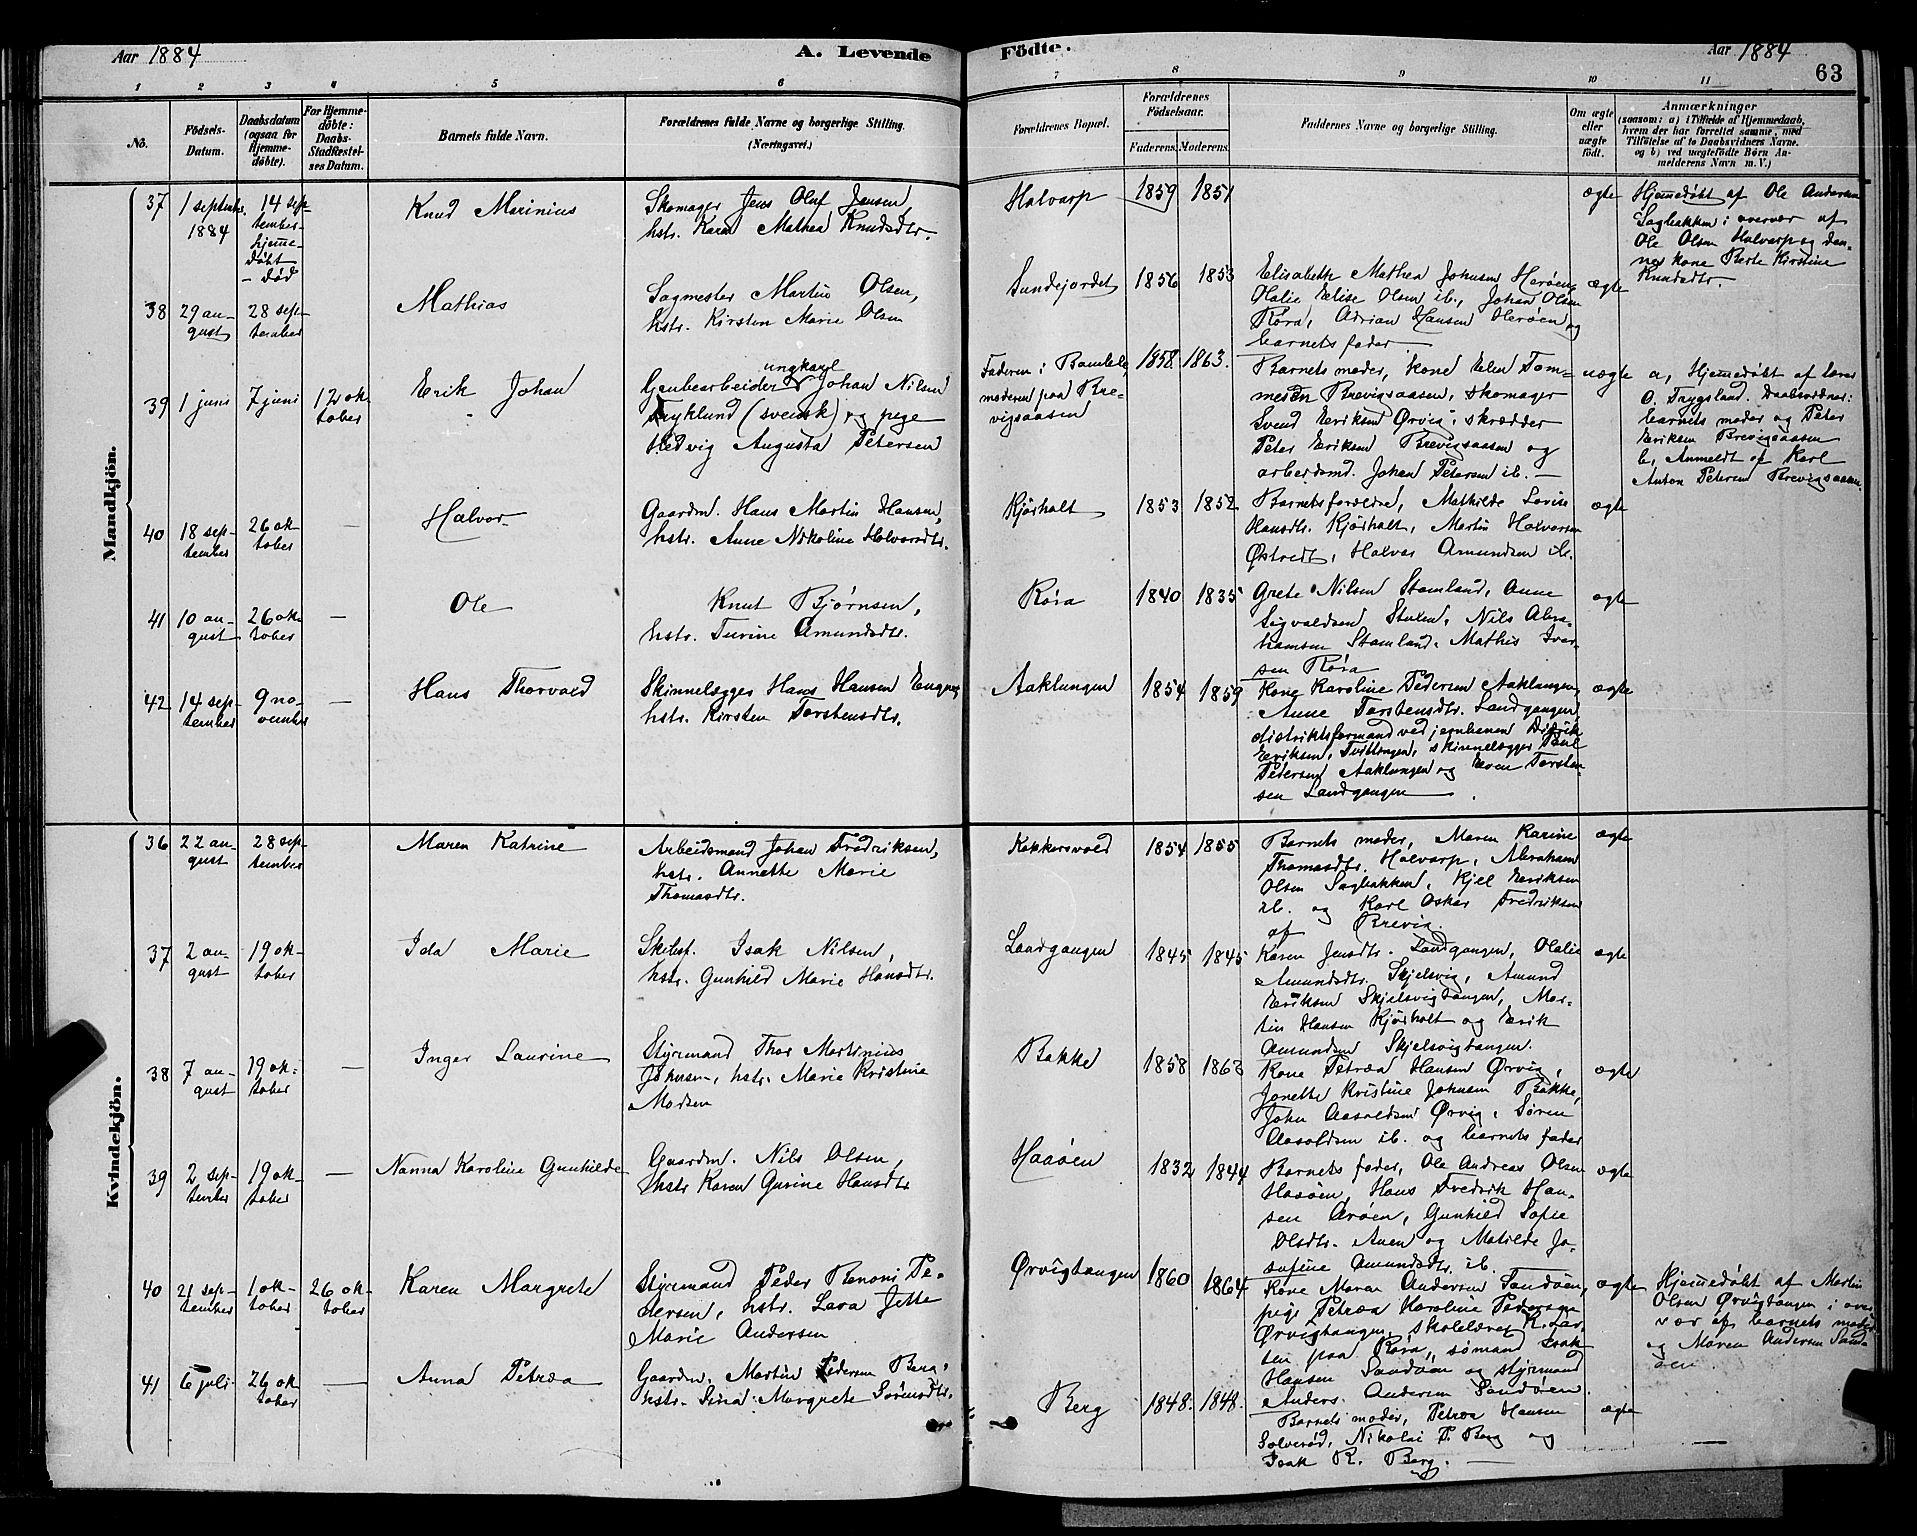 Aar 1884
A. Levende
Födte.
Aar 1884
63
1 2 3 4 5 6 7 8 9 10 11
No.
Födsels-
Datum.
Daabsdatum
(ogsaa for
Hjemme-
döbte).
For Hjemme-
döbte:
Daabs-
Stadfæstel-
ses Datum.
Barnets fulde Navn.
Forældrenes fulde Navne og borgerlige Stilling.
(Næringsvei.)
Forældrenes Bopæl.
Forældrenes
Födselsaar.
Faderens. Moderens.
Faddernes Navne og borgerlige Stilling.
Om ægte
eller
uægte
födt.
Anmærkninger
(saasom: a) i Tilfælde af Hjemmedaab,
hvem der har forrettet samme, med
Tilföielse af to Daabsvidners Navne,
og b) ved uægtefödte Börn An-
melderens Navn m. V.)
Mandkjön.
37
1 septbr.
1884
14 sep-
tember
hjeme-
døbt
- død
Knud Marinius
Skomager Jens Oluf Jensen,
hstr. Karen Mathea Knudsdtr.
Halvarp
1859 1851
ægte
Hjemedøbt af Ole Andersen
Sagbakken i overvær af
Ole Olsen Halvarp og den-
nes kone Berte Kirstine
Knudsdtr.
38
29 au-
gust
28 sep-
tember
Mathias
Sagmester Martin Olsen,
hstr. Kirsten Marie Olsen
Sundejordet
1856 1853
Elisabeth Mathea Johnsen Herøen,
Olalie Elise Olsen ib., Johan Olsen
Røra, Adrian Hansen Herøen og
barnets fader
ægte
39
1 juni
7 juni
12 ok-
tober
Erik Johan
ungkarl
Grubearbeider Johan Nilsen
Fryklund (svensk) og pige
Hedvig Augusta Petersen
Faderen i Bamble,
moderen paa Bre-
vigsaasen
1858. 1863.
Barnets moder, kone Elen Tom-
mesen Brevigsaasen, skomager
Svend Eriksen Ørvig, skrædder
Peter Eriksen Brevigsaasen og
arbeidsmd. Johan Petersen ib. —
uægte
a, Hjemedøbt af lærer
O. Trygsland. Daabsvidner:
barnets moder og Peter
Eriksen Brevigsaasen
b, Anmeldt af Karl
Anton Petersen Brevigsaasen
40
18 sep-
tember
26 ok
tober
—
Halvor
Gaardm. Hans Martin Hansen,
hstr. Anne Nikoline Halvorsdtr.
Kjørholt
1853 1852
Barnets forældre, Mathilde Lovise
Hansdtr. Kjørholt, Martin Halvorsen
Østvedt, Halvor Amundsen ib.
ægte
41
10 au-
gust
26 ok-
tober
—
Ole
Knut Bjørnsen,
hstr. Turine Amundsdtr.
Røra
1840 1835
Grete Nilsen Stamland, Anne
Sigvaldsen Stulen, Nils Abra-
hamsen Stamland, Mathis Iver-
sen Røra
ægte
42
14 sep-
tember
9 no-
vember
—
Hans Thorvald
Skinnelægger Hans Hansen Engnes,
hstr. Kirsten Torstensdtr.
Aaklungen
1854 1859
Kone Karoline Pedersen Aaklungen,
Anne Torstensdtr. Landgangen,
distriktsformand ved jernbanen Didrik
Eriksen, Tvittingen, skinnelægger Paul
Pedersen Aaklungen og Even Torsten-
sen Landgangen
ægte
Kvindekjön.
36
22 au-
gust
28 sep-
tember
Maren Katrine
Arbeidsmand Johan Fredriksen,
hstr. Annette Marie
Thomasdtr.
Kokkersvold
1854 1855
Barnets moder, Maren Karine
Thomasdtr. Halvarp, Abraham
Olsen Sagbakken, Kjel Eriksen
ib. og Karl Oskar Fredriksen
af Brevig.
ægte
37
2 au-
gust
19 ok-
tober
Ida Marie
Skibsf. Isak Nilsen,
hstr. Gunhild Marie Hansdtr.
Landgangen
1845 1845
Karen Jensdtr. Landgangen, Olalie
Amundsdtr. Skjelsvig, Amund
Eriksen Skjelsvigtangen, Mar-
tin Hansen Kjørholt og Erik
Amundsen Skjelsvigtangen.
ægte
38
7 au-
gust
19 ok-
tober
—
Inger Laurine
Styrmand Thor Martinius
Johnsen, hstr. Marie Kristine
Madsen
Bakke
1858 1863
Kone Petrea Hansen Ørvig,
Jonette Kristine Johnsen Bakke,
John Aasoldsen Ørvig, Søren
Aasoldsen ib. og barnets fader
ægte
39
2 sep-
tember
19 ok-
tober
—
Nanna Karoline Gunhilde
Gaardm. Nils Olsen,
hstr Karen Gurine Hansdtr
Haaøen
1832 1844
Barnets fader, Ole Andreas Olsen
Haaøen, Hans Fredrik Han-
sen Arøen, Gunhild Sofie
Olsdtr. Auen og Matilde Jo-
sefine Amundsdtr. ib.
ægte
40
21 sep-
tember
1 ok-
tober
26 ok-
tober
Karen Margrete
Styrmand Peder Benoni Pe-
dersen, hstr. Lava Jette
Marie Andersen
Ørvigtangen
1860 1864
Kone Maren Andersen Sandøen,
pige Petrea Karoline Pedersen
Ørvigtangen, skolelærer K. Lar-
sen paa Røra, sømand Isak
Hansen Sandøen og styrmand
Anders Andersen Sandøen.
ægte
Hjemedøbt af Martin
Olsen Ørvigtangen i over
vær af barnets moder
og Maren Andersen Sand-
øen.
41
6 juli
26 ok
tober
—
Anna Petrea
Gaardm. Martin Pedersen Berg,
hstr. Sina Margrete Sørensdtr.
Berg
1848. 1848.
Barnets moder, Petrea Hansen
Solverød, Nikolai P. Berg og
Isak R. Berg. —
ægte